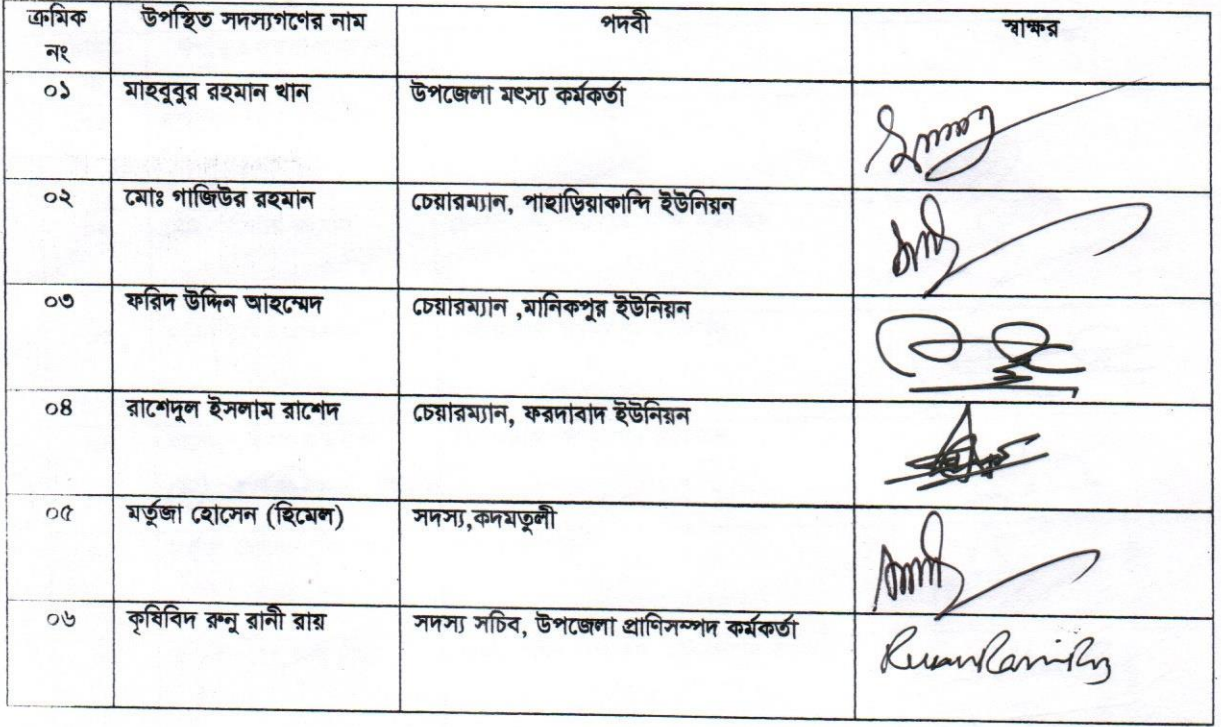 ক্রমিক নং উপস্থিত সদস্যগণের নাম পদবী স্বাক্ষর
০১ মাহবুবুর রহমান খান উপজেলা মৎস্য কর্মকর্তা
০২ মোঃ গাজিউর রহমান চেয়ারম্যান, পাহাড়িয়াকান্দি ইউনিয়ন
০৩ ফরিদ উদ্দিন আহম্মেদ চেয়ারম্যান ,মানিকপুর ইউনিয়ন
০৪ রাশেদুল ইসলাম রাশেদ চেয়ারম্যান, ফরদাবাদ ইউনিয়ন
০৫ মর্তুজা হোসেন (হিমেল) সদস্য,কদমতুলী
০৬ কৃষিবিদ রুনু রানী রায় সদস্য সচিব, উপজেলা প্রাণিসম্পদ কর্মকর্তা